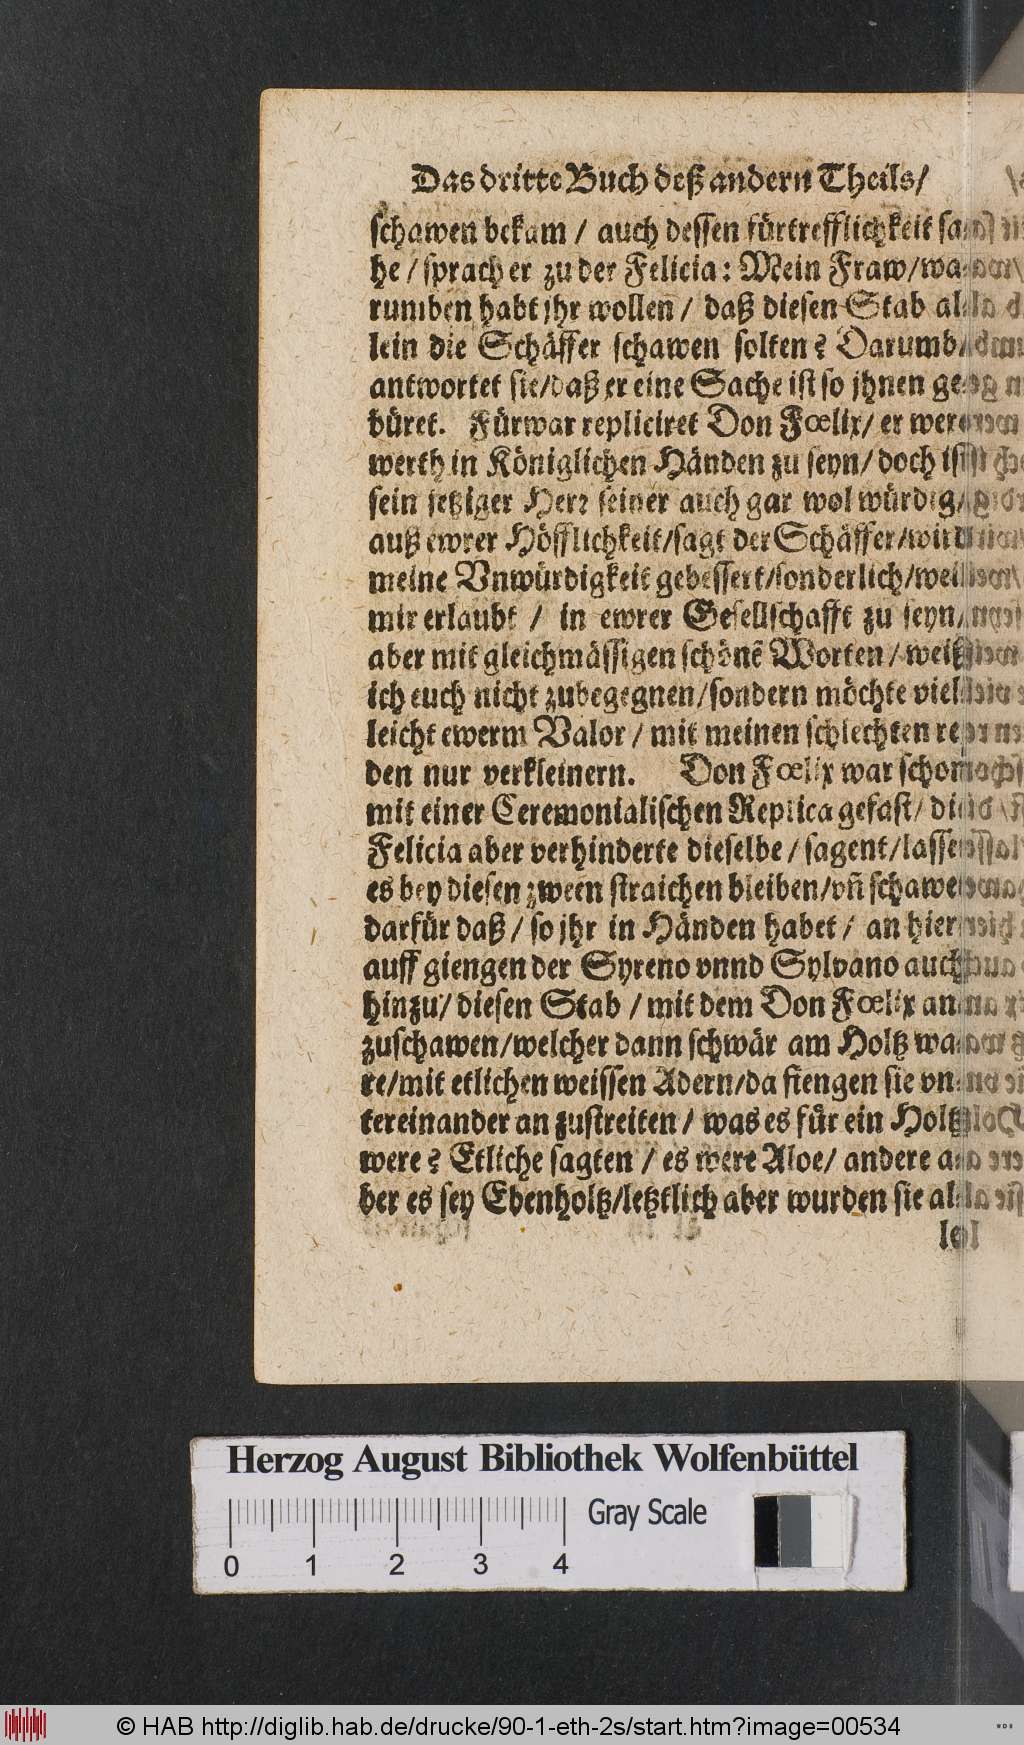 Das dritte Buch deß andern Theils/
schawen bekam / auch dessen fürtrefflichkeit sa-
he / sprach er zu der Felicia: Mein Fraw/wa-
rumben habt jhr wollen / daß diesen Stab al-
lein die Schäffer schawen solten? Darumb/
antwortet sie/daß er eine Sache ist so jhnen ge-
büret. Fürwar repliciret Don Fœlix/ er were
werth in Königlichen Händen zu seyn/ doch ist
sein jetziger Herr seiner auch gar wol würdig/
auß ewrer Höfflichkeit/sagt der Schäffer/wird
meine Vnwürdigkeit gebessert/sonderlich/weil
mir erlaubt / in ewrer Gesellschafft zu seyn/
aber mit gleichmässigen schönẽ Worten / weiß
ich euch nicht zubegegnen/sondern möchte viel-
leicht ewerm Valor / mit meinen schlechten re-
den nur verkleinern. Don Fœlix war schon
mit einer Ceremonialischen Replica gefast/ die
Felicia aber verhinderte dieselbe / sagent/lassen
es bey diesen zween straichen bleiben/vñ schawe
darfür daß / so jhr in Händen habet / an hier
auff giengen der Syreno vnnd Sylvano auch
hinzu/ diesen Stab / mit dem Don Fœlix an-
zuschawen/welcher dann schwär am Holtz wa-
re/mit etlichen weissen Adern/da fiengen sie vn-
tereinander an zustreiten / was es für ein Holtz
were? Etliche sagten / es were Aloe/ andere a-
ber es sey Ebenholtz/letztlich aber wurden sie al-
lel
Herzog August Bibliothek Wolfenbüttel
Gray Scale
0 1 2 3 4
© HAB http://diglib.hab.de/drucke/90-1-eth-2s/start.htm?image=00534